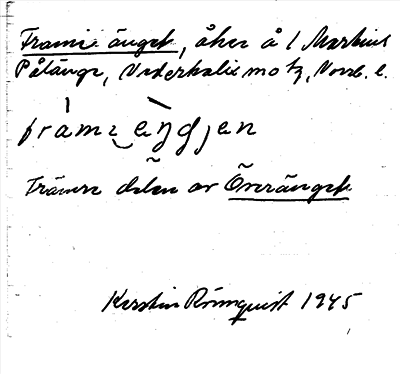 Främre änget, åker å 1 Martins
Pålänge, Nederkalix sn o tg, Norrb. l.
främ̀ɪ_eŋdjen
Främre delen av Överänget
Kerstin Rönnquist 1945